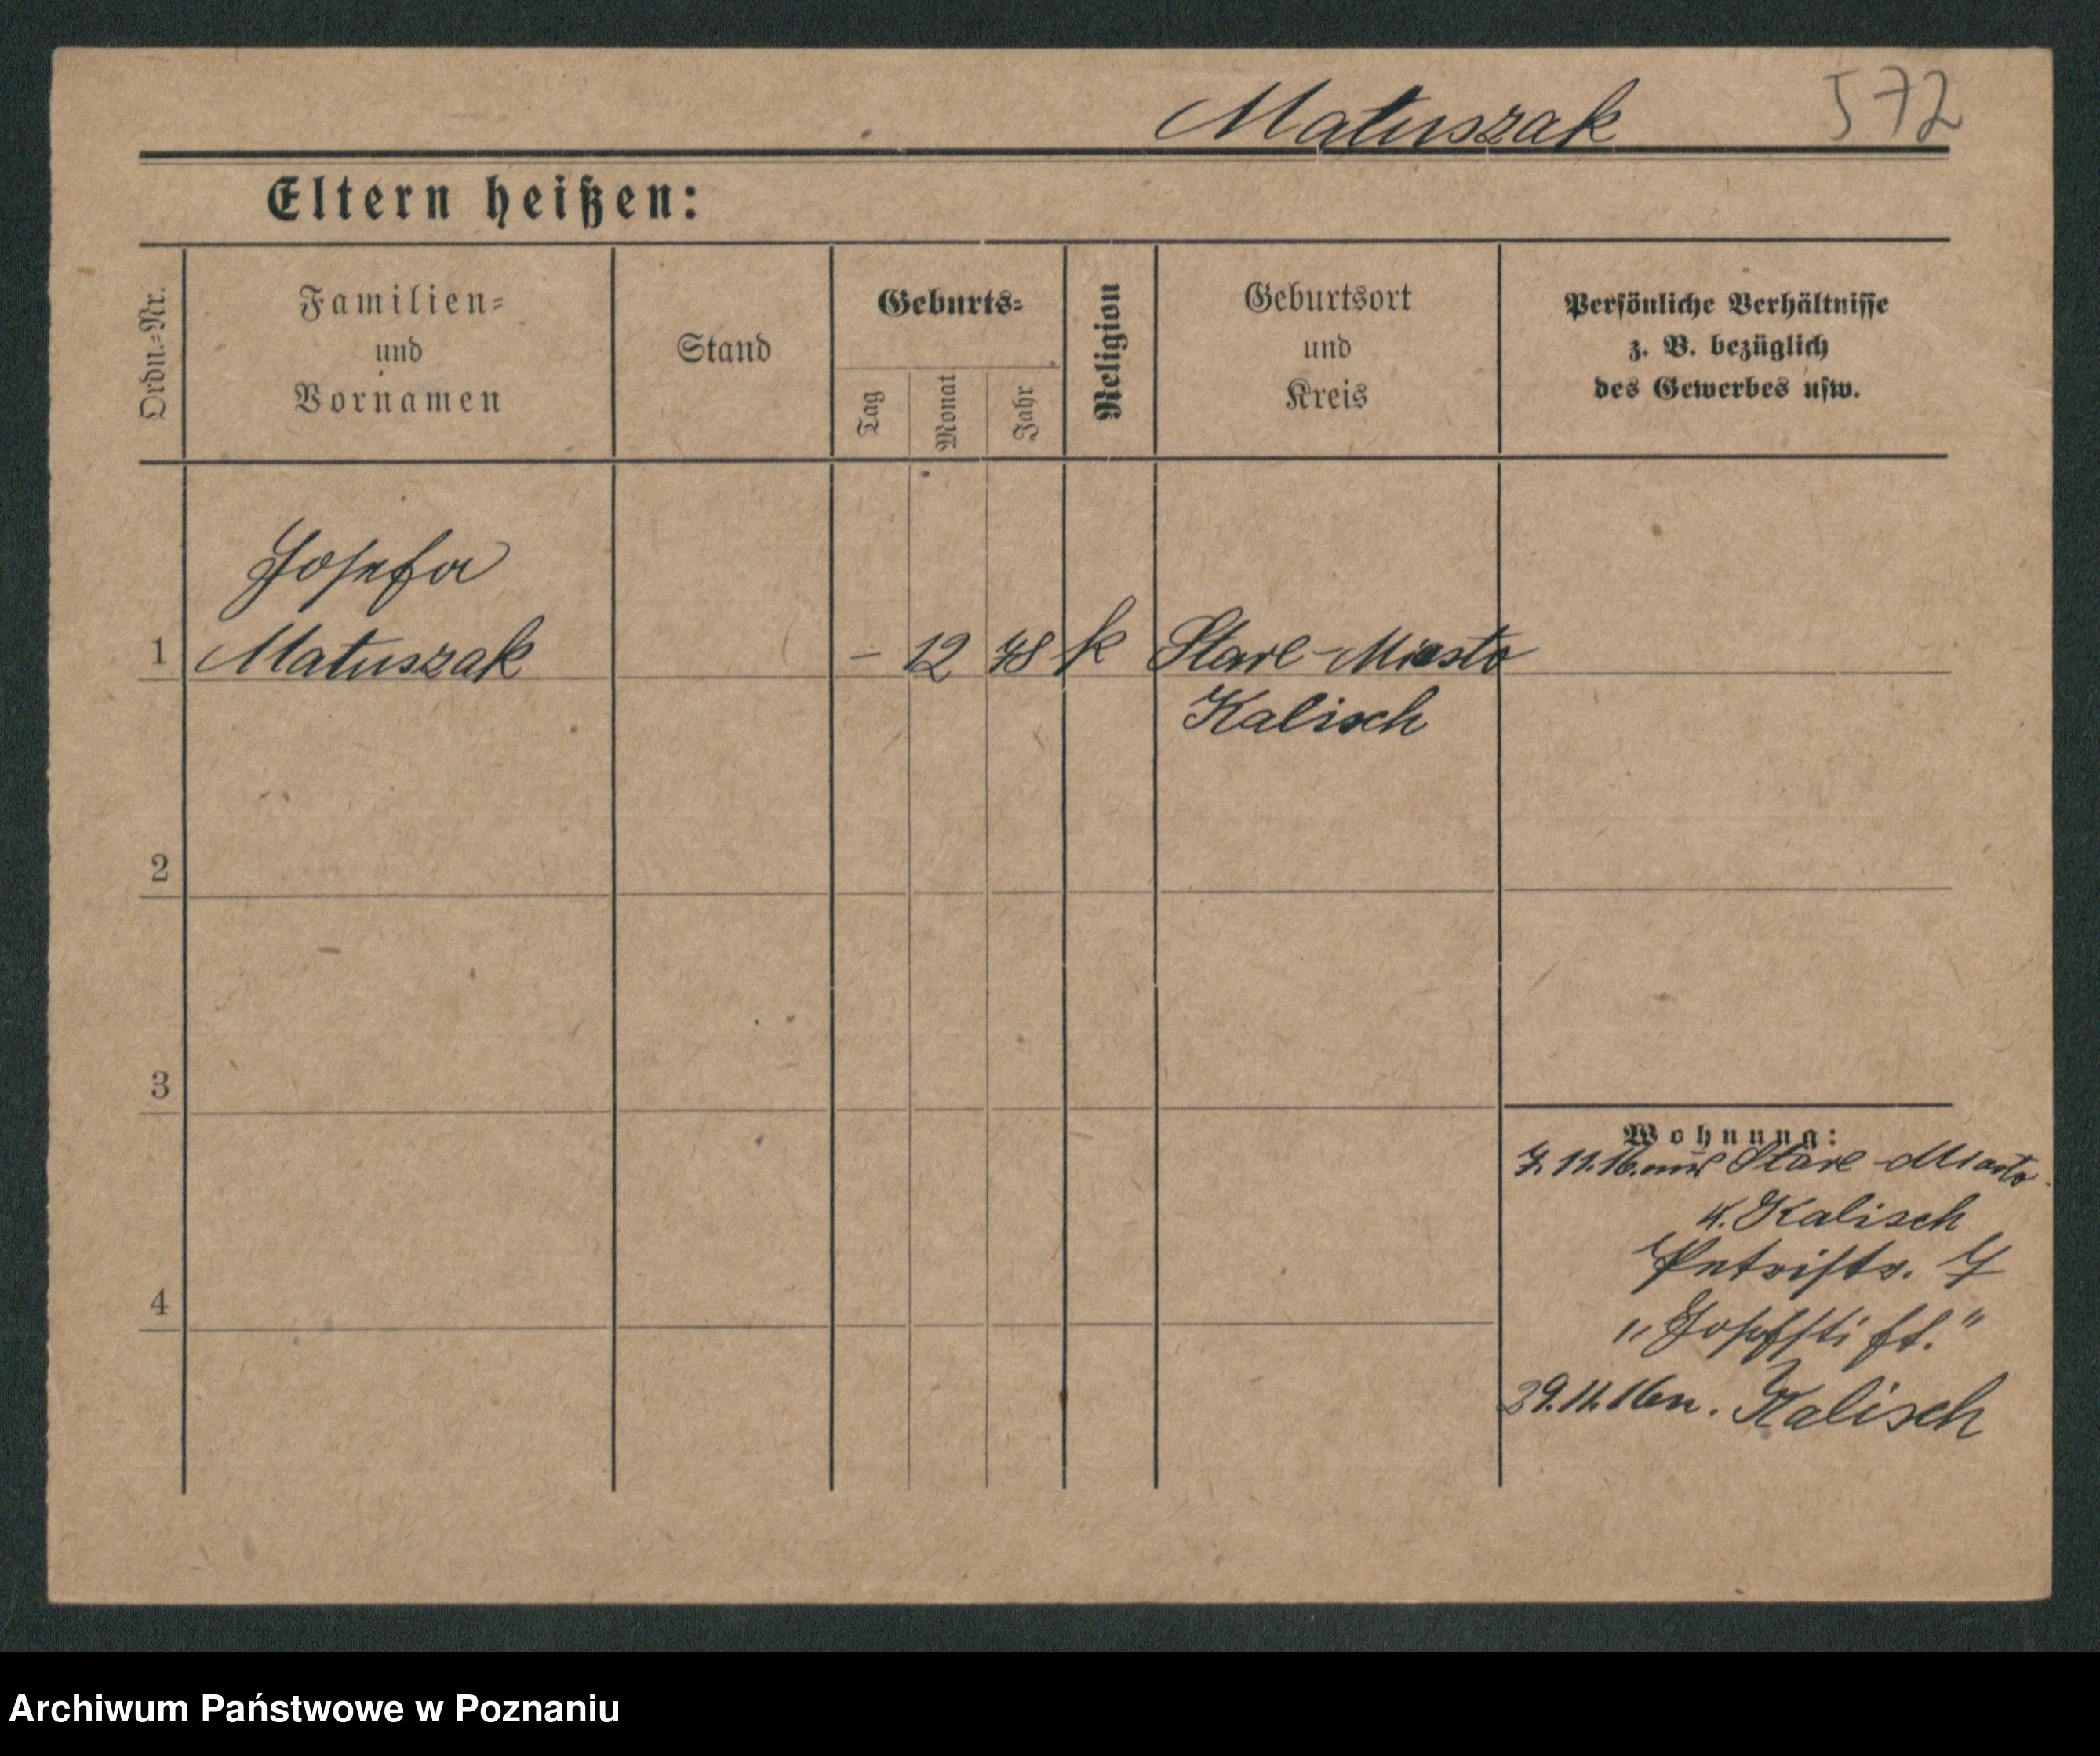 Matuszak 572
Eltern heißen:
Ordn.-Nr.
Familien-
und
Vornamen
Stand
Geburts-
Tag
Monat
Jahr
Religion
Geburtsort
und
Kreis
Persönliche Verhältnisse
z. B. bezüglich
des Gewerbes usw.
Josefa
1 Matuszak – 12 78 k Stare-Miasto
Kalisch
2
3
4
Wohnung:
7. 11. 16. aus Stare-Miasto
K. Kalisch
Petristr. 7
„Josefstift."
29. 11. 16 n. Kalisch
Archiwum Państwowe w Poznaniu